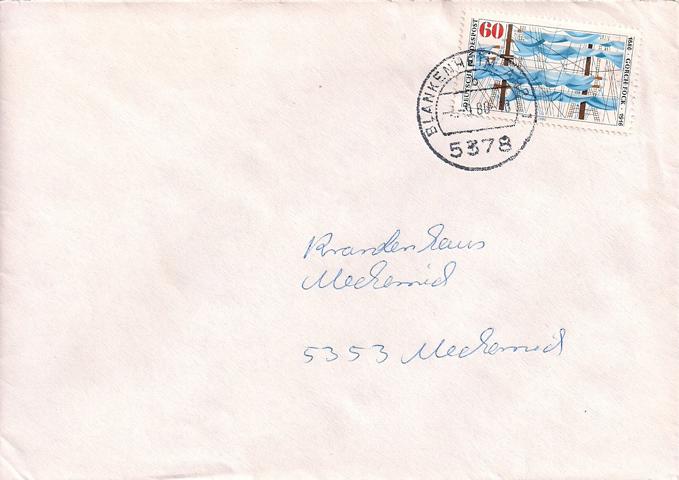 60
DEUTSCHE BUNDESPOST
1916 · GORCH FOCK · 1916
BLANKENHEIM, AHR
80
5378
Krankenhaus
Mechernich
5353 Mechernich